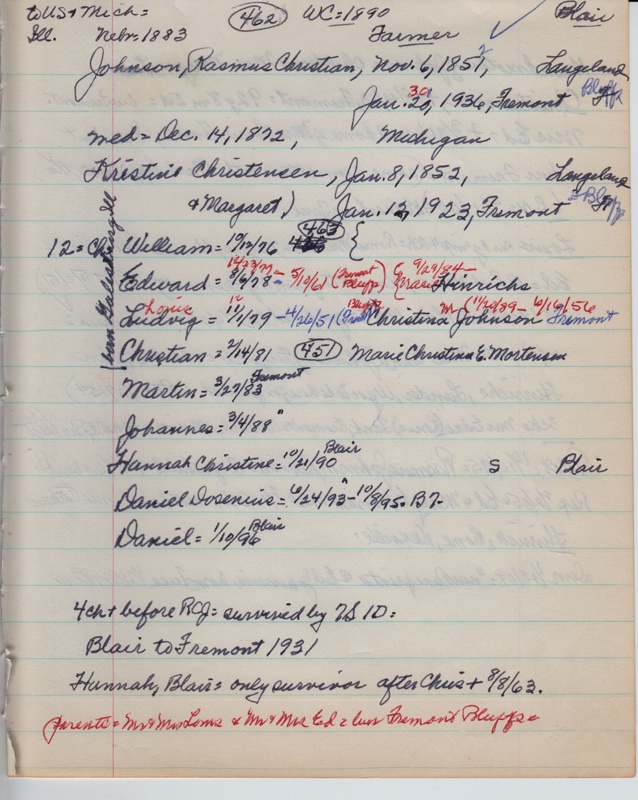 to US + Mich = (462) WC=1890 Blair
Ill. Nebr. 1883 Farmer
Johnson, Rasmus Christian, Nov. 6, 1851, 2 Langeland,
Jan. 20, 30 1936, Fremont Bluffs
med = Dec. 14, 1872, Michigan
Kristine Christensen, Jan. 8, 1852, Langeland
& Margaret) Jan. 12, 1923, Fremont = Bluffs
12 = Ch = William = 10/12/76 463 {
12/23/77
Edward = 8/6/78 - 5/19/61 (Fremont Bluffs) { 9/29/84 - Marie Hinrichs
Louis 12 Bluffs
Ludvig = 11/1/79 - 4/26/51 Christina Johnson m (11/20/89 - 6/16/56 Fremont
Christian = 2/14/81 (451) Marie Christina E. Mortensen
Martin = 3/27/83 Fremont
Johannes = 3/4/88 "
Hannah Christine = 10/21/90 Blair S Blair
Daniel Dosenius = 6/24/93 " - 10/8/95. B
Daniel = 1/10/96 Blair
born Galesburg Ill
4 ch + before RCJ = survived by 7S 1D =
Blair to Fremont 1931
Hannah, Blair = only survivor after Chris + 8/8/63.
parents = Mr & Mrs Louis & Mr & Mrs Ed = bur Fremont Bluffs